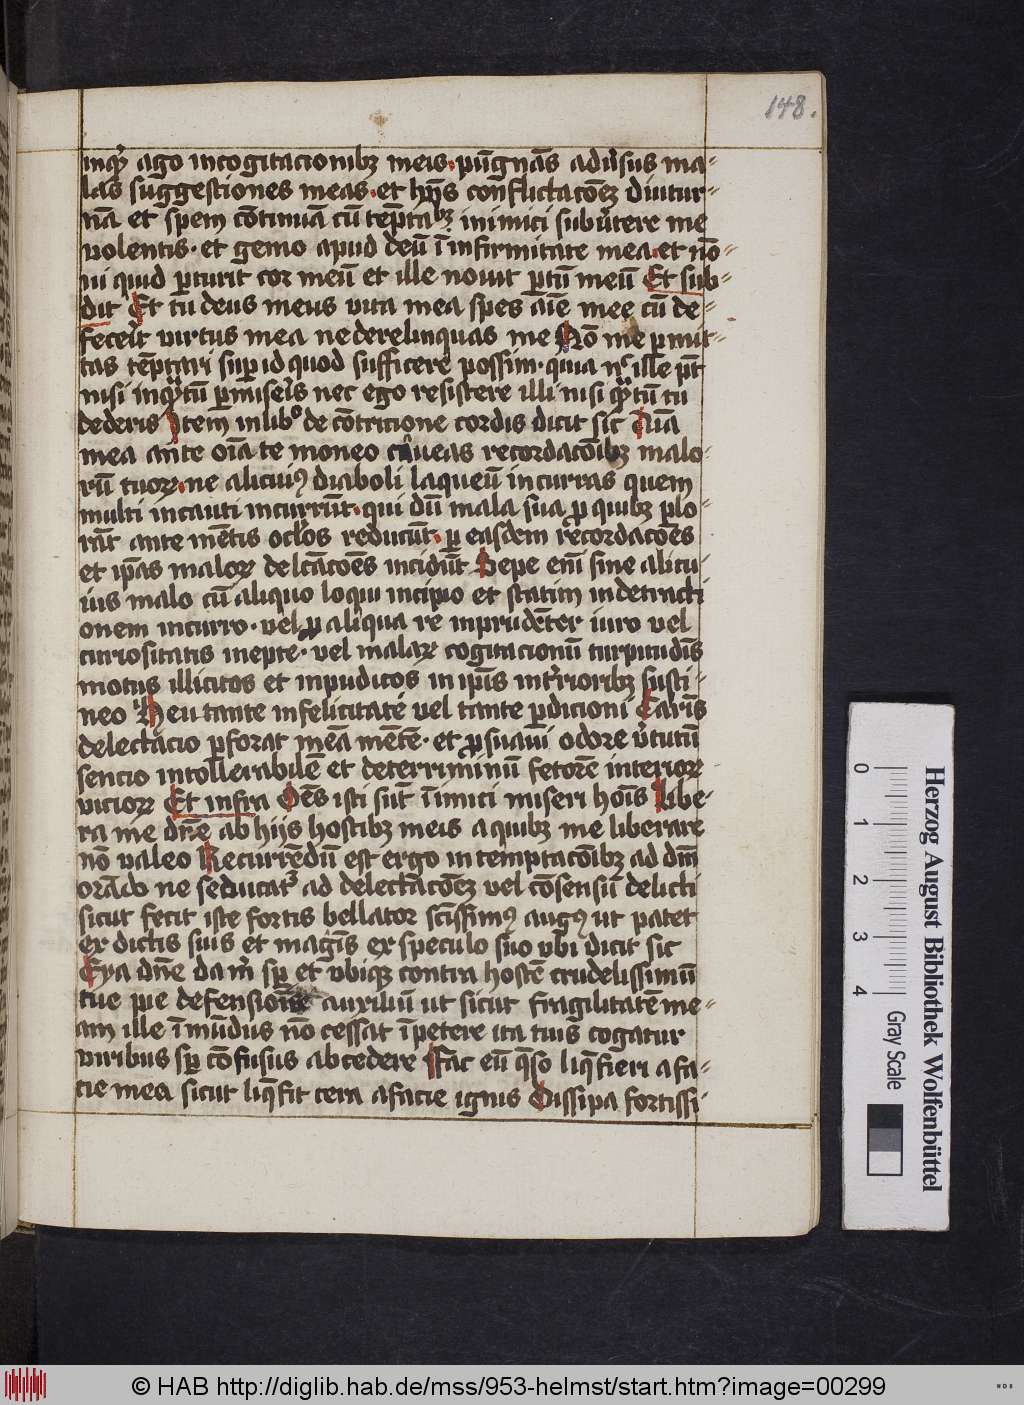 148.
inqͣ ago in cogitacionibꝫ meis · pūgnās aduʼsus ma⸗
las suggestiones meas · et hijs conflictacōēꝫ diutur⸗
nā et spem cōtinuā cū tēptabꝫ inimici subuʼtere me
volentis · et gemo apud deū ī infirmitate mea · et nō⸗
ni quid ꝑturit cor meū et ille nouit ꝑtū meū Et sub⸗
dit Et tu deus meus vita mea spes aīe mee cū de⸗
feceʼit virtus mea ne derelinquas me Nō me ꝑmit⸗
tas tēptari suꝑ id quod sufficere possim · quia nͨ ille pt̄
nisi inqͣtū ꝑmiseʼis nec ego resistere illi nisi qͣtū tu
dederis Item in libͦ de cōtricione cordis dicit sic Aīa
mea ante oīa te moneo caueas recordacōibꝫ malo⸗
rū tuoꝝ · ne alicuiꝰ diaboli laqueū incurras quem
multi incauti incurrūt · qui dū mala sua ꝓ quibꝫ plo⸗
rāt ante mētis oclʼos reducūt · ꝑ easdem recordacōes
et ip̄as maloꝝ delc̄acōēs incidūt Sepe enī sine alicu⸗
ius malo cū aliquo loqui incipio et statim in detracti
onem incurro · vel ꝓ aliqua re inprudēter iuro vel
curiositatis inepte · vel malaꝝ cogitacionū turpitudīs
motus illicitos et inpudicos in ip̄is intʼrioribꝫ susti⸗
neo Heu tante infelicitate vel tante ꝑdicioni Carīs
delectacio ꝑforat meā mētē · et ꝓ suaui odore vʼtutū
sencio intollerabilē et deterriminū fetorē interioꝝ
vicioꝝ Et infra Oēs isti sūt īimici miseri hoīs Libe⸗
ra me dn̄e ab hijs hostibꝫ meis a quibꝫ me liberare
nō valeo Recurrēdū est ergo in temptacōibꝫ ad dn̄m
orādo ne seducatʼ ad delectacōēꝫ vel cōsensū delicti
sicut fecit iste fortis bellator sc̄issimꝰ augꝰ ut patet
ex dictis suis et magīs ex speculo suo vbi dicit sic
Eya dn̄e da mͥ sꝑ et vbiqꝫ contra hostē crudelissimū
tue pie defensiōīs auxiliū ut sicut fragilitatē me⸗
am ille īmūdus nō cessat īpetere ita tuis cogatur
viribus sꝑ cōfusus abcedere Fac eū q̄so liq̄fieri a fa⸗
cie mea sicut liq̄fit cera a facie ignis Dissipa fortissi⸗
Herzog August Bibliothek Wolfenbüttel
0 1 2 3 4 Gray Scale
© HAB http://diglib.hab.de/mss/953-helmst/start.htm?image=00299